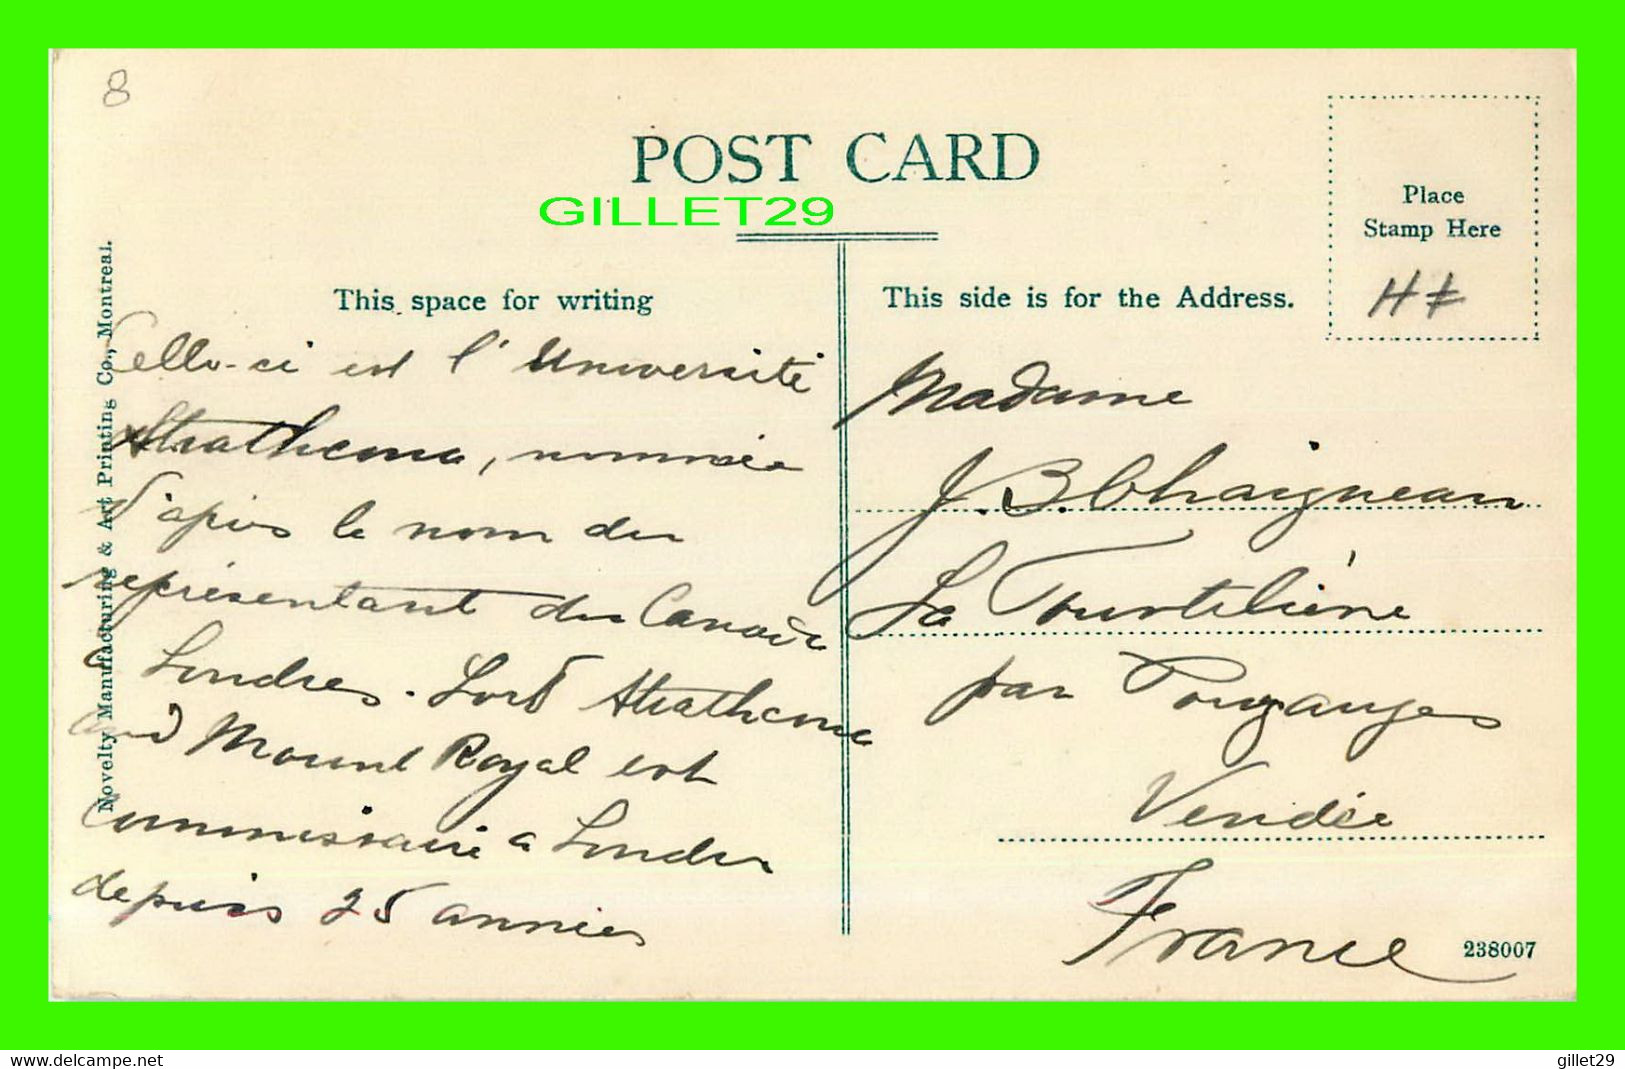 8
POST CARD
GILLET29
Place
Stamp Here
This space for writing
This side is for the Address.
Celle-ci est l'Université
Strathcona, nommée
d'après le nom du
représentant du Canada
a Londres. Lord Strathcona
and Mount Royal est
Commissaire a Londres
depuis 25 années
Madame
J. B. Chaigneau
La Tourtelière
par Pouzauges
Vendée
France
238007
Novelty Manufacturing & Art Printing Co., Montreal.
www.delcampe.net
gillet29